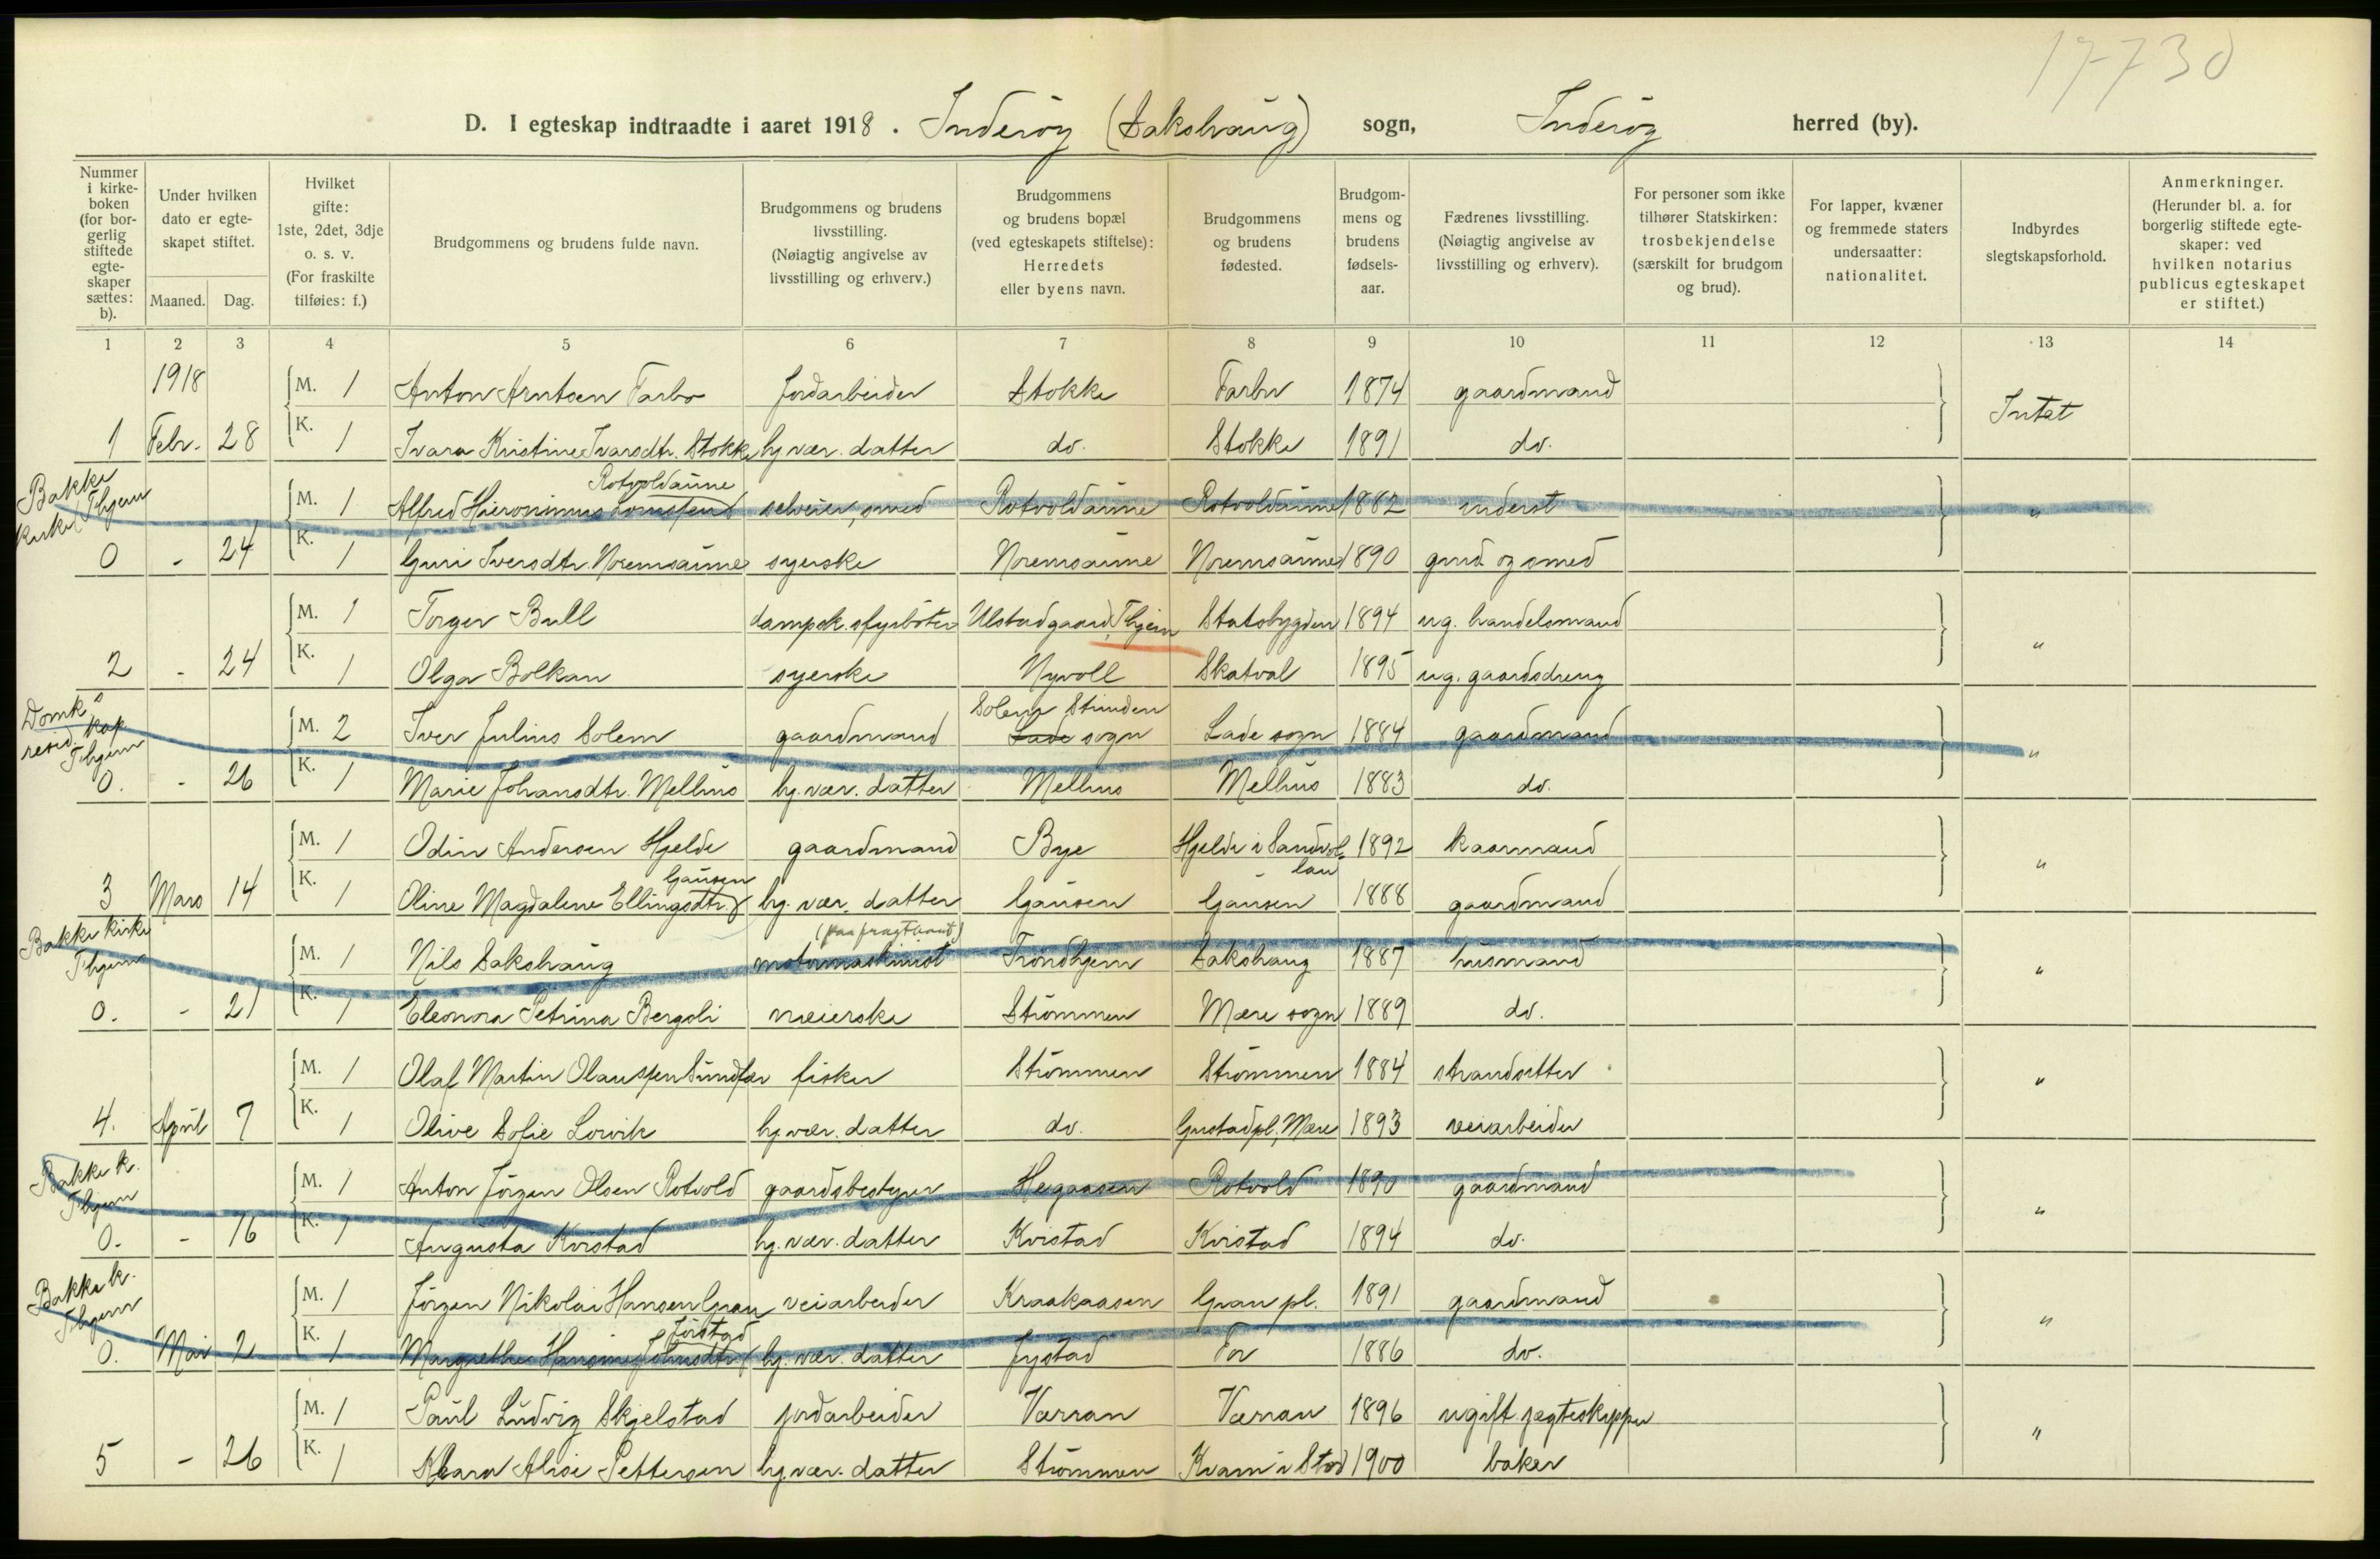 17730
D. I egteskap indtraadte i aaret 1918. Inderöy (Sakshaug) sogn, Inderöy herred (by).
Nummer i kirke-boken (for bor-gerlig stiftede egte-skaper sættes: b).
Under hvilken dato er egte-skapet stiftet.
Maaned. Dag.
Hvilket gifte: 1ste, 2det, 3dje o. s. v. (For fraskilte tilføies: f.)
Brudgommens og brudens fulde navn.
Brudgommens og brudens livsstilling. (Nøiagtig angivelse av livsstilling og erhverv.)
Brudgommens og brudens bopæl (ved egteskapets stiftelse): Herredets eller byens navn.
Brudgommens og brudens fødested.
Brudgom-mens og brudens fødsels-aar.
Fædrenes livsstilling. (Nøiagtig angivelse av livsstilling og erhverv).
For personer som ikke tilhører Statskirken: trosbekjendelse (særskilt for brudgom og brud).
For lapper, kvæner og fremmede staters undersaatter: nationalitet.
Indbyrdes slegtskapsforhold.
Anmerkninger. (Herunder bl. a. for borgerlig stiftede egte-skaper: ved hvilken notarius publicus egteskapet er stiftet.)
1 2 3 4 5 6 7 8 9 10 11 12 13 14
1918 M. 1 Anton Arntsen Farbo Jordarbeider Stokke Farbu 1874 gaardmand Intet
1 Febr. 28 K. 1 Ivara Kristine Ivarsdtr. Stokke hj. vær. datter do. Stokke 1891 do.
Bakke kirke Thjem
Rotvoldaune
M. 1 Alfred Hieronimus selveier, smed Rotvoldaune Rotvoldaune 1882 inderst "
0 - 24 K. 1 Guri Iversdtr. Noremsaune syerske Noremsaune Noremsaune 1890 gmd og smed
M. 1 Torger Bull dampsk. fyrböter Ulstadgaard, Thjem Statsbygden 1894 ug. handelsmand "
2 - 24 K. 1 Olga Bolkan syerske Nyvoll Skatval 1895 ug. gaardsdreng
Domk s resid. kap. Thjem
Solem Strinden
M. 2 Iver Julius Solem gaardmand Lade sogn Lade sogn 1884 gaardmand "
0. - 26 K. 1 Marie Johansdtr. Melhus hj. vær. datter Melhus Melhus 1883 do.
M. 1 Odin Andersen Hjelde gaardmand Bye Hjelde i Sandvol- 1892 kaarmand "
Gausen lan
3 Mars 14 K. 1 Oline Magdalene Ellingsdtr. hj. vær. datter Gausen Gausen 1888 gaardmand
Bakke kirke Thjem
(paa fragtbaat)
M. 1 Nils Sakshaug motormaskinist Trondhjem Sakshaug 1887 husmand "
0. - 21 K. 1 Eleonora Petrina Bergsli meierske Strömmen Mære sogn 1889 do.
M. 1 Olaf Martin Olaussen Sundfær fisker Strömmen Strömmen 1884 strandsitter "
4. April 7 K. 1 Olive Sofie Lorvik hj. vær. datter do. Gustadpl., Mære 1893 veiarbeider
Bakke k. Thjem
M. 1 Anton Jörgen Olsen Rotvold gaardsbestyrer Hegaasen Rotvold 1890 gaardmand "
0. - 16 K. 1 Augusta Kvistad hj. vær. datter Kvistad Kvistad 1894 do.
Bakke k. Thjem
M. 1 Jörgen Nikolai Hansen Gran veiarbeider Kraakaasen Gran pl. 1891 gaardmand "
Jörstad
0. Mai 2 K. 1 Margrethe Hansine Johnsdtr. hj. vær. datter Jystad For 1886 do.
M. 1 Paul Ludvig Skjelstad jordarbeider Værran Værran 1896 ugift jægteskipper "
5 - 26 K. 1 Klara Alise Pettersen hj. vær. datter Strömmen Kvam i Stod 1900 baker